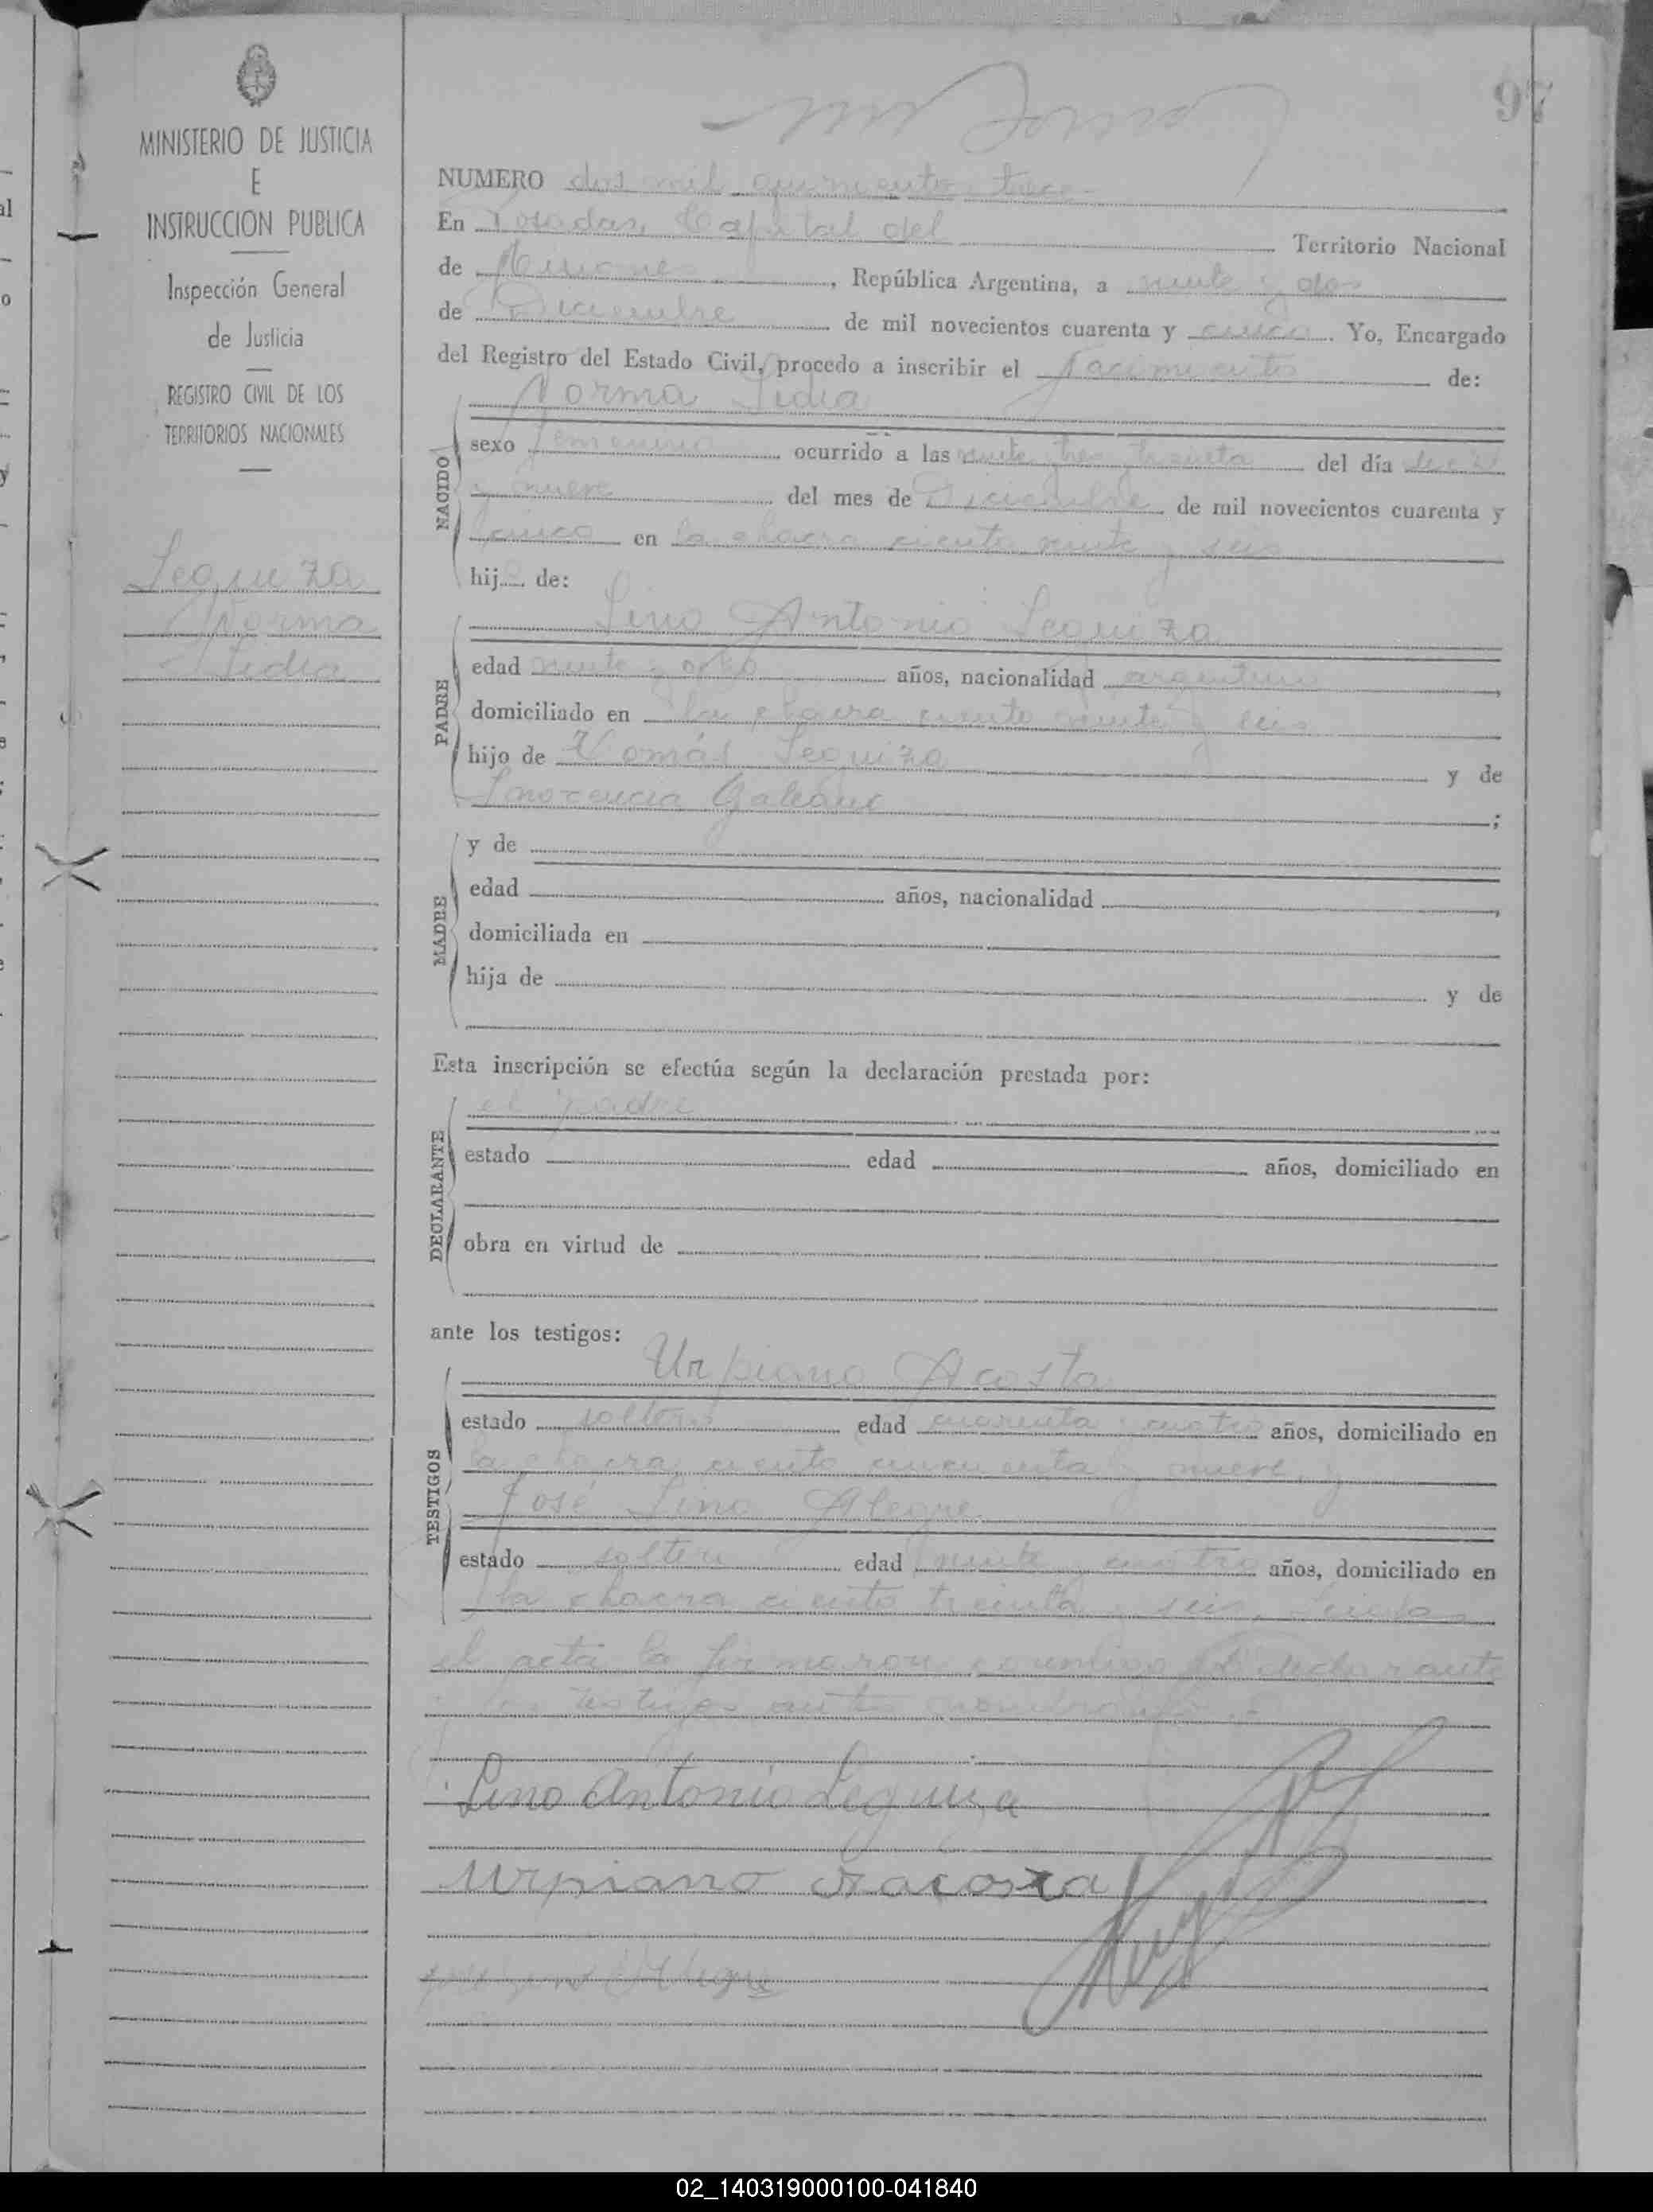 97
MINISTERIO DE JUSTICIA
E
INSTRUCCION PUBLICA
Inspección General
de Justicia
REGISTRO CIVIL DE LOS
TERRITORIOS NACIONALES
Leguiza
Norma
Lidia
NUMERO dos mil quinientos trece
En Posadas, Capital del Territorio Nacional
de Misiones, República Argentina, a veinte y dos
de Diciembre de mil novecientos cuarenta y cinco. Yo, Encargado
del Registro del Estado Civil, procedo a inscribir el nacimiento de:
Norma Lidia
NACIDO
sexo femenino ocurrido a las veinte tres treinta del día diez
y nueve del mes de Diciembre de mil novecientos cuarenta y
cinco en la chacra ciento veinte y seis
hij de:
PADRE
Lino Antonio Leguiza
edad veinte y ocho años, nacionalidad argentino,
domiciliado en la chacra ciento veinte y seis
hijo de Tomás Leguiza y de
Inocencia Galeano;
MADRE
y de
edad años, nacionalidad ,
domiciliada en
hija de y de
Esta inscripción se efectúa según la declaración prestada por:
DECLARANTE
el padre
estado edad años, domiciliado en
obra en virtud de
ante los testigos:
TESTIGOS
Urpiano Acosta
estado soltero edad cuarenta y cuatro años, domiciliado en
la chacra ciento cincuenta y nueve, y
José Lino Alegre
estado soltero edad veinte cuatro años, domiciliado en
la chacra ciento treinta y seis. Leida
el acta la firmaron conmigo el declarante
y los testigos ante nombrados.
Lino Antonio Leguiza
Urpiano Acosta
02_140319000100-041840